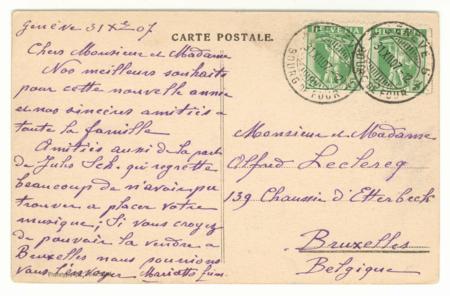 CARTE POSTALE.
Genève 31 Xbre 07
Chers Monsieur et Madame
Nos meilleurs souhaits
pour cette nouvelle année
et nos sincères amitiés a
toute la famille
Amitiés aussi de la part
de Jules Sch. qui regrette
beaucoup de n'avoir pu
trouver a placer votre
musique; Si vous croyez
de pouvoir la vendre a
Bruxelles nous pourrions
vous l'envoyer Mariotti
Monsieur et Madame
Alfred Leclercq
139 Chaussée d'Etterbeck
Bruxelles
Belgique
GENÈVE
BOURG DE FOUR
GENÈVE
BOURG DE FOUR